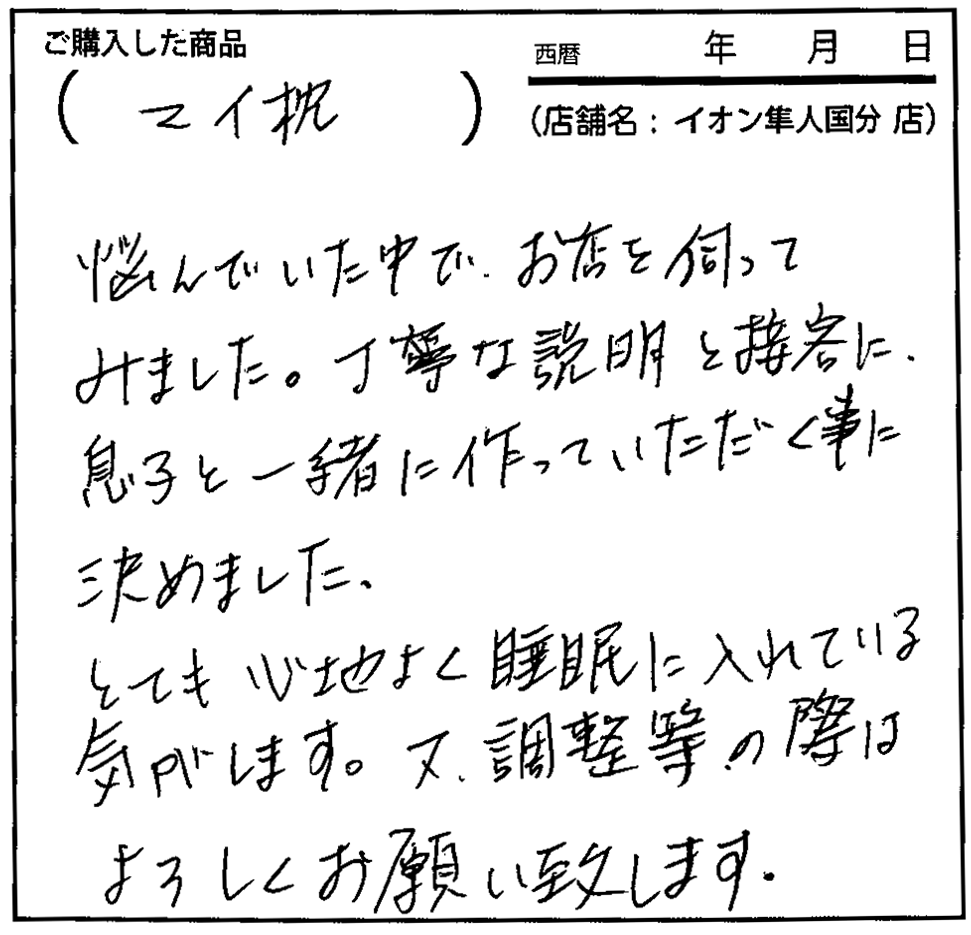 ご購入した商品
西暦 年 月 日
( マイ枕 )
(店舗名:イオン隼人国分 店)
悩んでいた中で、お店を伺って
みました。丁寧な説明と接客に、
息子と一緒に作っていただく事に
決めました、
とても心地よく睡眠に入れている
気がします。又、調整等の際は
よろしくお願い致します.